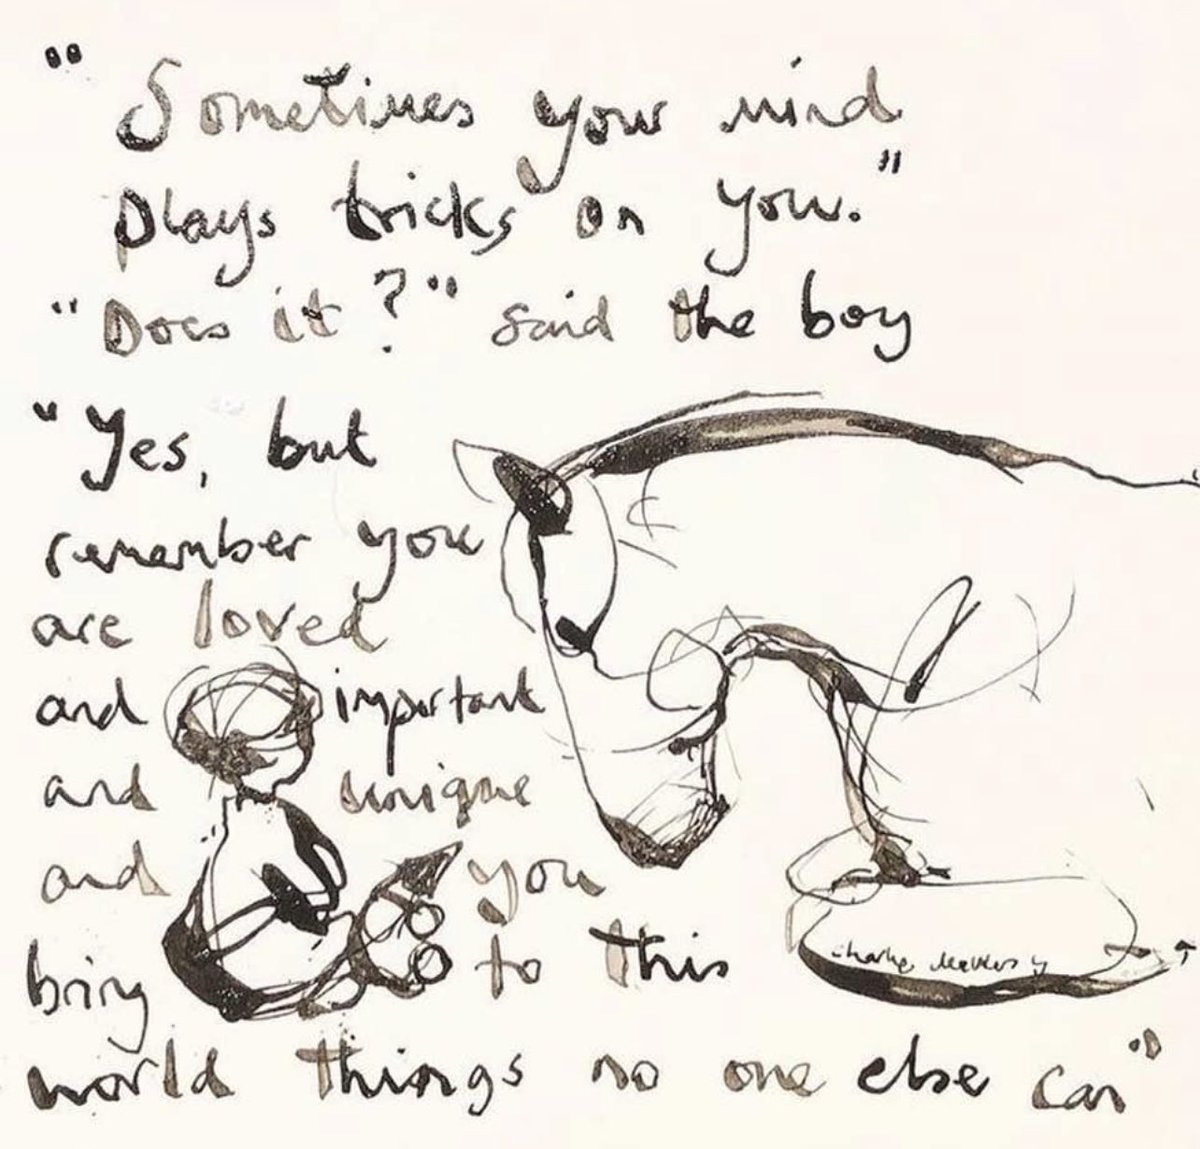 "Sometimes your mind
plays tricks on you."
"Does it?" said the boy
"Yes, but
remember you
are loved
and important
and unique
and you
bring to this
world things no one else can"
charlie mackesy